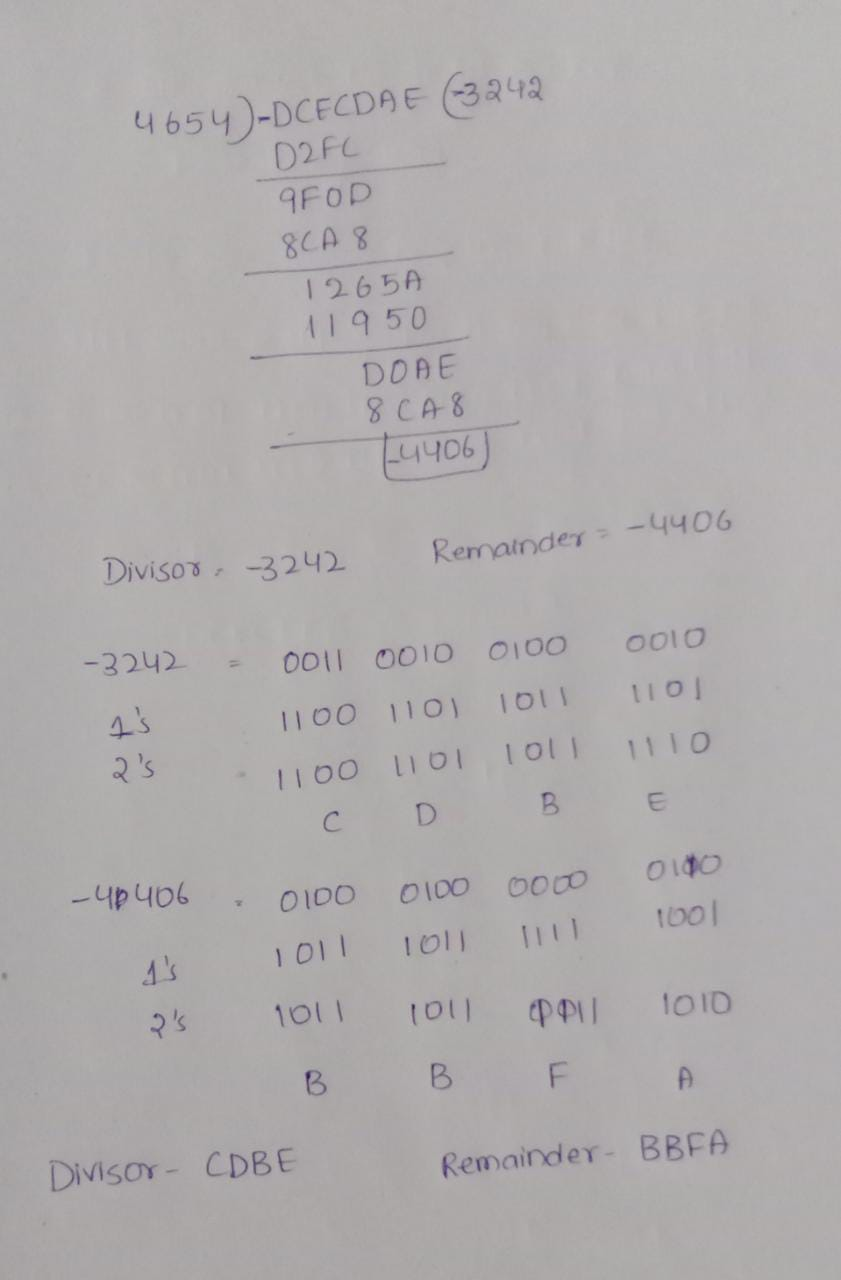 4654)-DCECDAE(-3242
D2FC
9F0D
8CA8
1265A
11950
D0AE
8CA8
-4406
Divisor = -3242 Remainder = -4406
-3242 = 0011 0010 0100 0010
1's 1100 1101 1011 1101
2's 1100 1101 1011 1110
C D B E
-4406 = 0100 0100 0000
1's 1011 1011 1111 1001
2's 1011 1011 1010
B B F A
Divisor - CDBE Remainder - BBFA